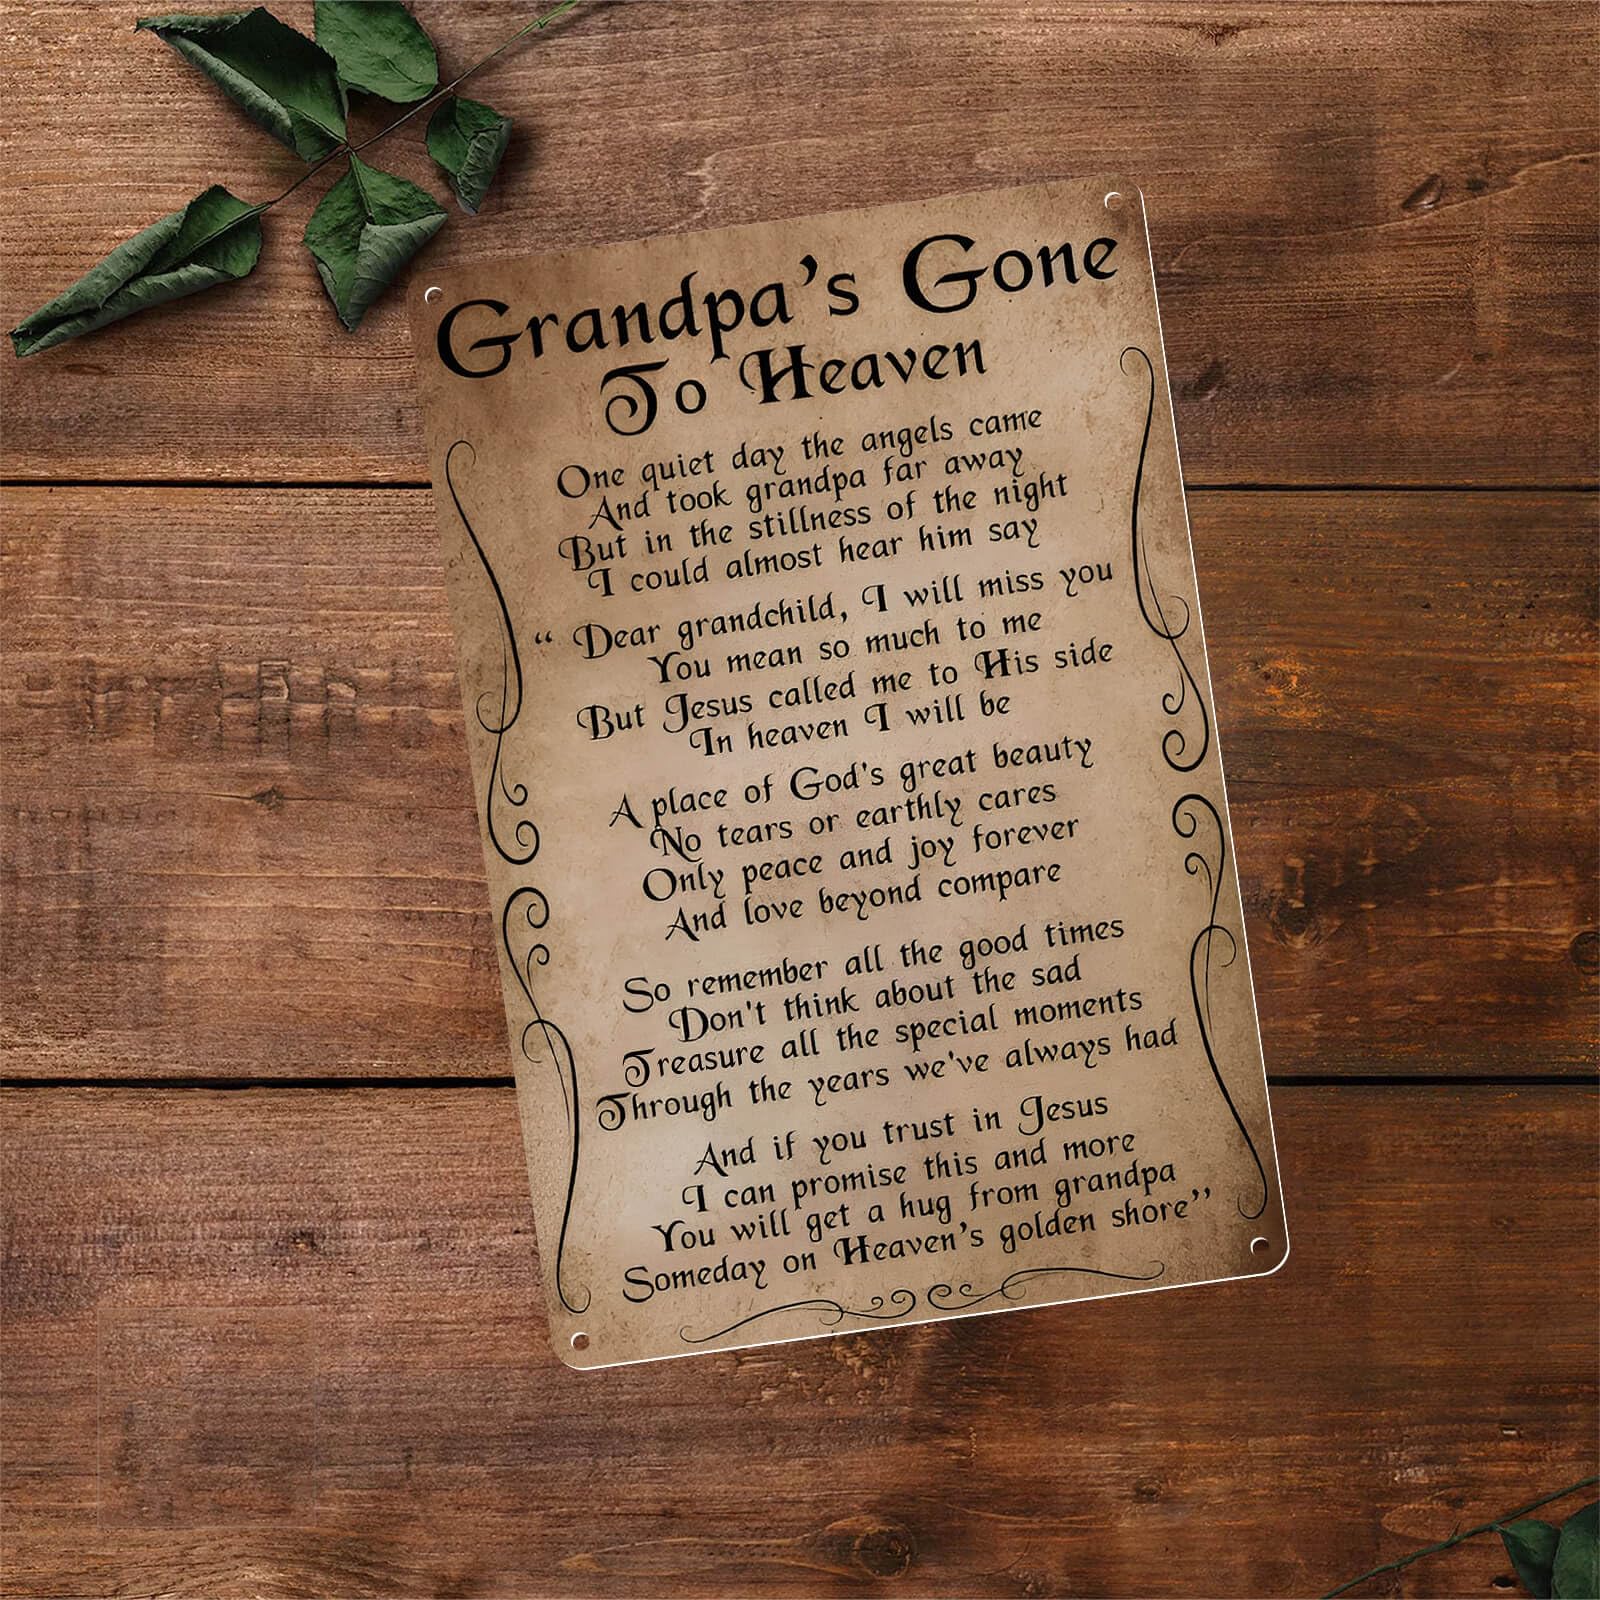 Grandpa's Gone
To Heaven
One quiet day the angels came
And took grandpa far away
But in the stillness of the night
I could almost hear him say
“ Dear grandchild, I will miss you
You mean so much to me
But Jesus called me to His side
In heaven I will be
A place of God's great beauty
No tears or earthly cares
Only peace and joy forever
And love beyond compare
So remember all the good times
Don't think about the sad
Treasure all the special moments
Through the years we've always had
And if you trust in Jesus
I can promise this and more
You will get a hug from grandpa
Someday on Heaven's golden shore”